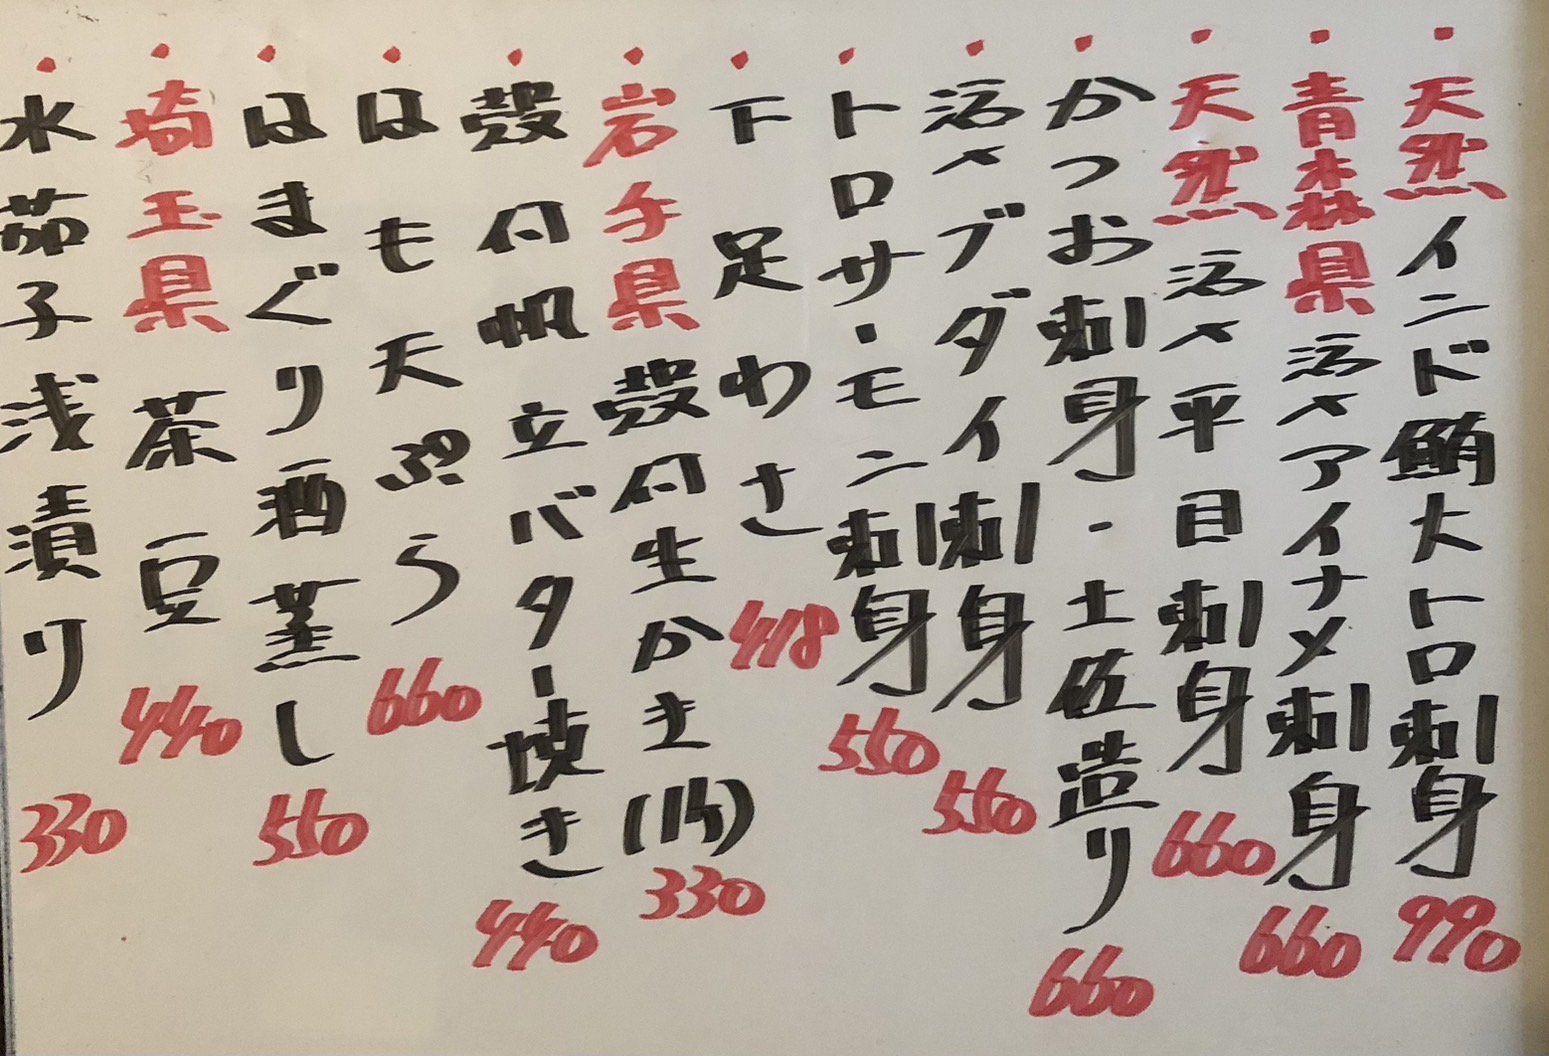 ・天然インド鮪大トロ刺身 990
・青森県活〆アイナメ刺身 660
・天然活〆平目刺身 660
・かつお刺身・土佐造り 660
・活〆ブダイ刺身 550
・トロサーモン刺身 550
・下足わさ 418
・岩手県殻付生かき(1ケ) 330
・殻付帆立バター焼き 440
・はも天ぷら 660
・はまぐり酒蒸し 550
・埼玉県茶豆 440
・水茄子浅漬り 330